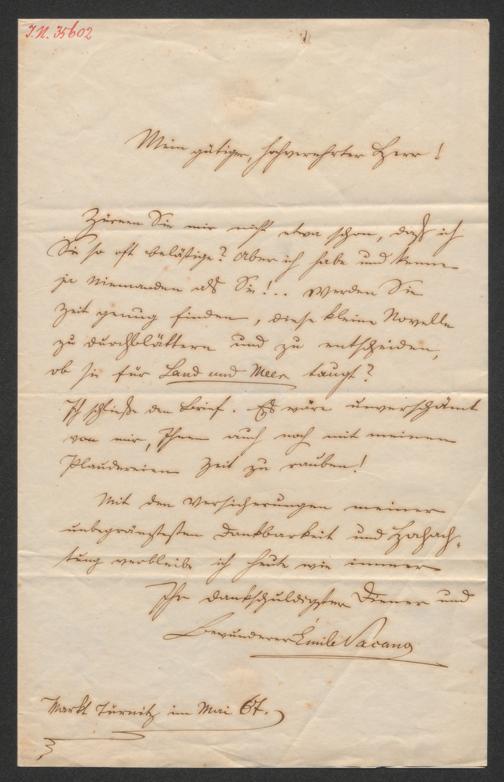 I.N. 35602
Mein gütiger, hochverehrter Herr!
Zürnen Sie mir nicht etwa schon, daß ich
Sie so oft belästige? Aber ich habe und kenne
ja Niemanden als Sie!.. Werden Sie
Zeit genug finden, diese kleine Novelle
zu durchblättern und zu entscheiden,
ob sie für Land und Meer taugt?
Ich schließe den Brief. Es wäre unverschämt
von mir, Ihnen auch noch mit meinen
Plaudereien Zeit zu rauben!
Mit den Versicherungen meiner
unbegränztesten Dankbarkeit und Hochach-
tung verbleibe ich heute wie immer
Ihr dankschuldigster Diener und
Bewunderer Emile Vacano
Markt Türnitz im Mai 67.